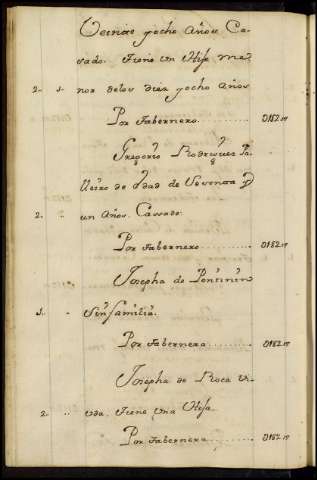 Veinte yocho Años Ca-
sado. Tiene Un Hijo me-
2- 1- nor delos diez yocho Años
Por Tabernero. 0182..17
Gregorio Rodriguez Ta-
de edad de Sesenta y
2. un Años. Cassado.
Por tabernero 0182..17
Josepha de
1. Sin familia.
Por tabernero 0182..17
Josepha de Roca Vi-
2. uda. Tiene Una Hija.
Por tabernera 0182..17